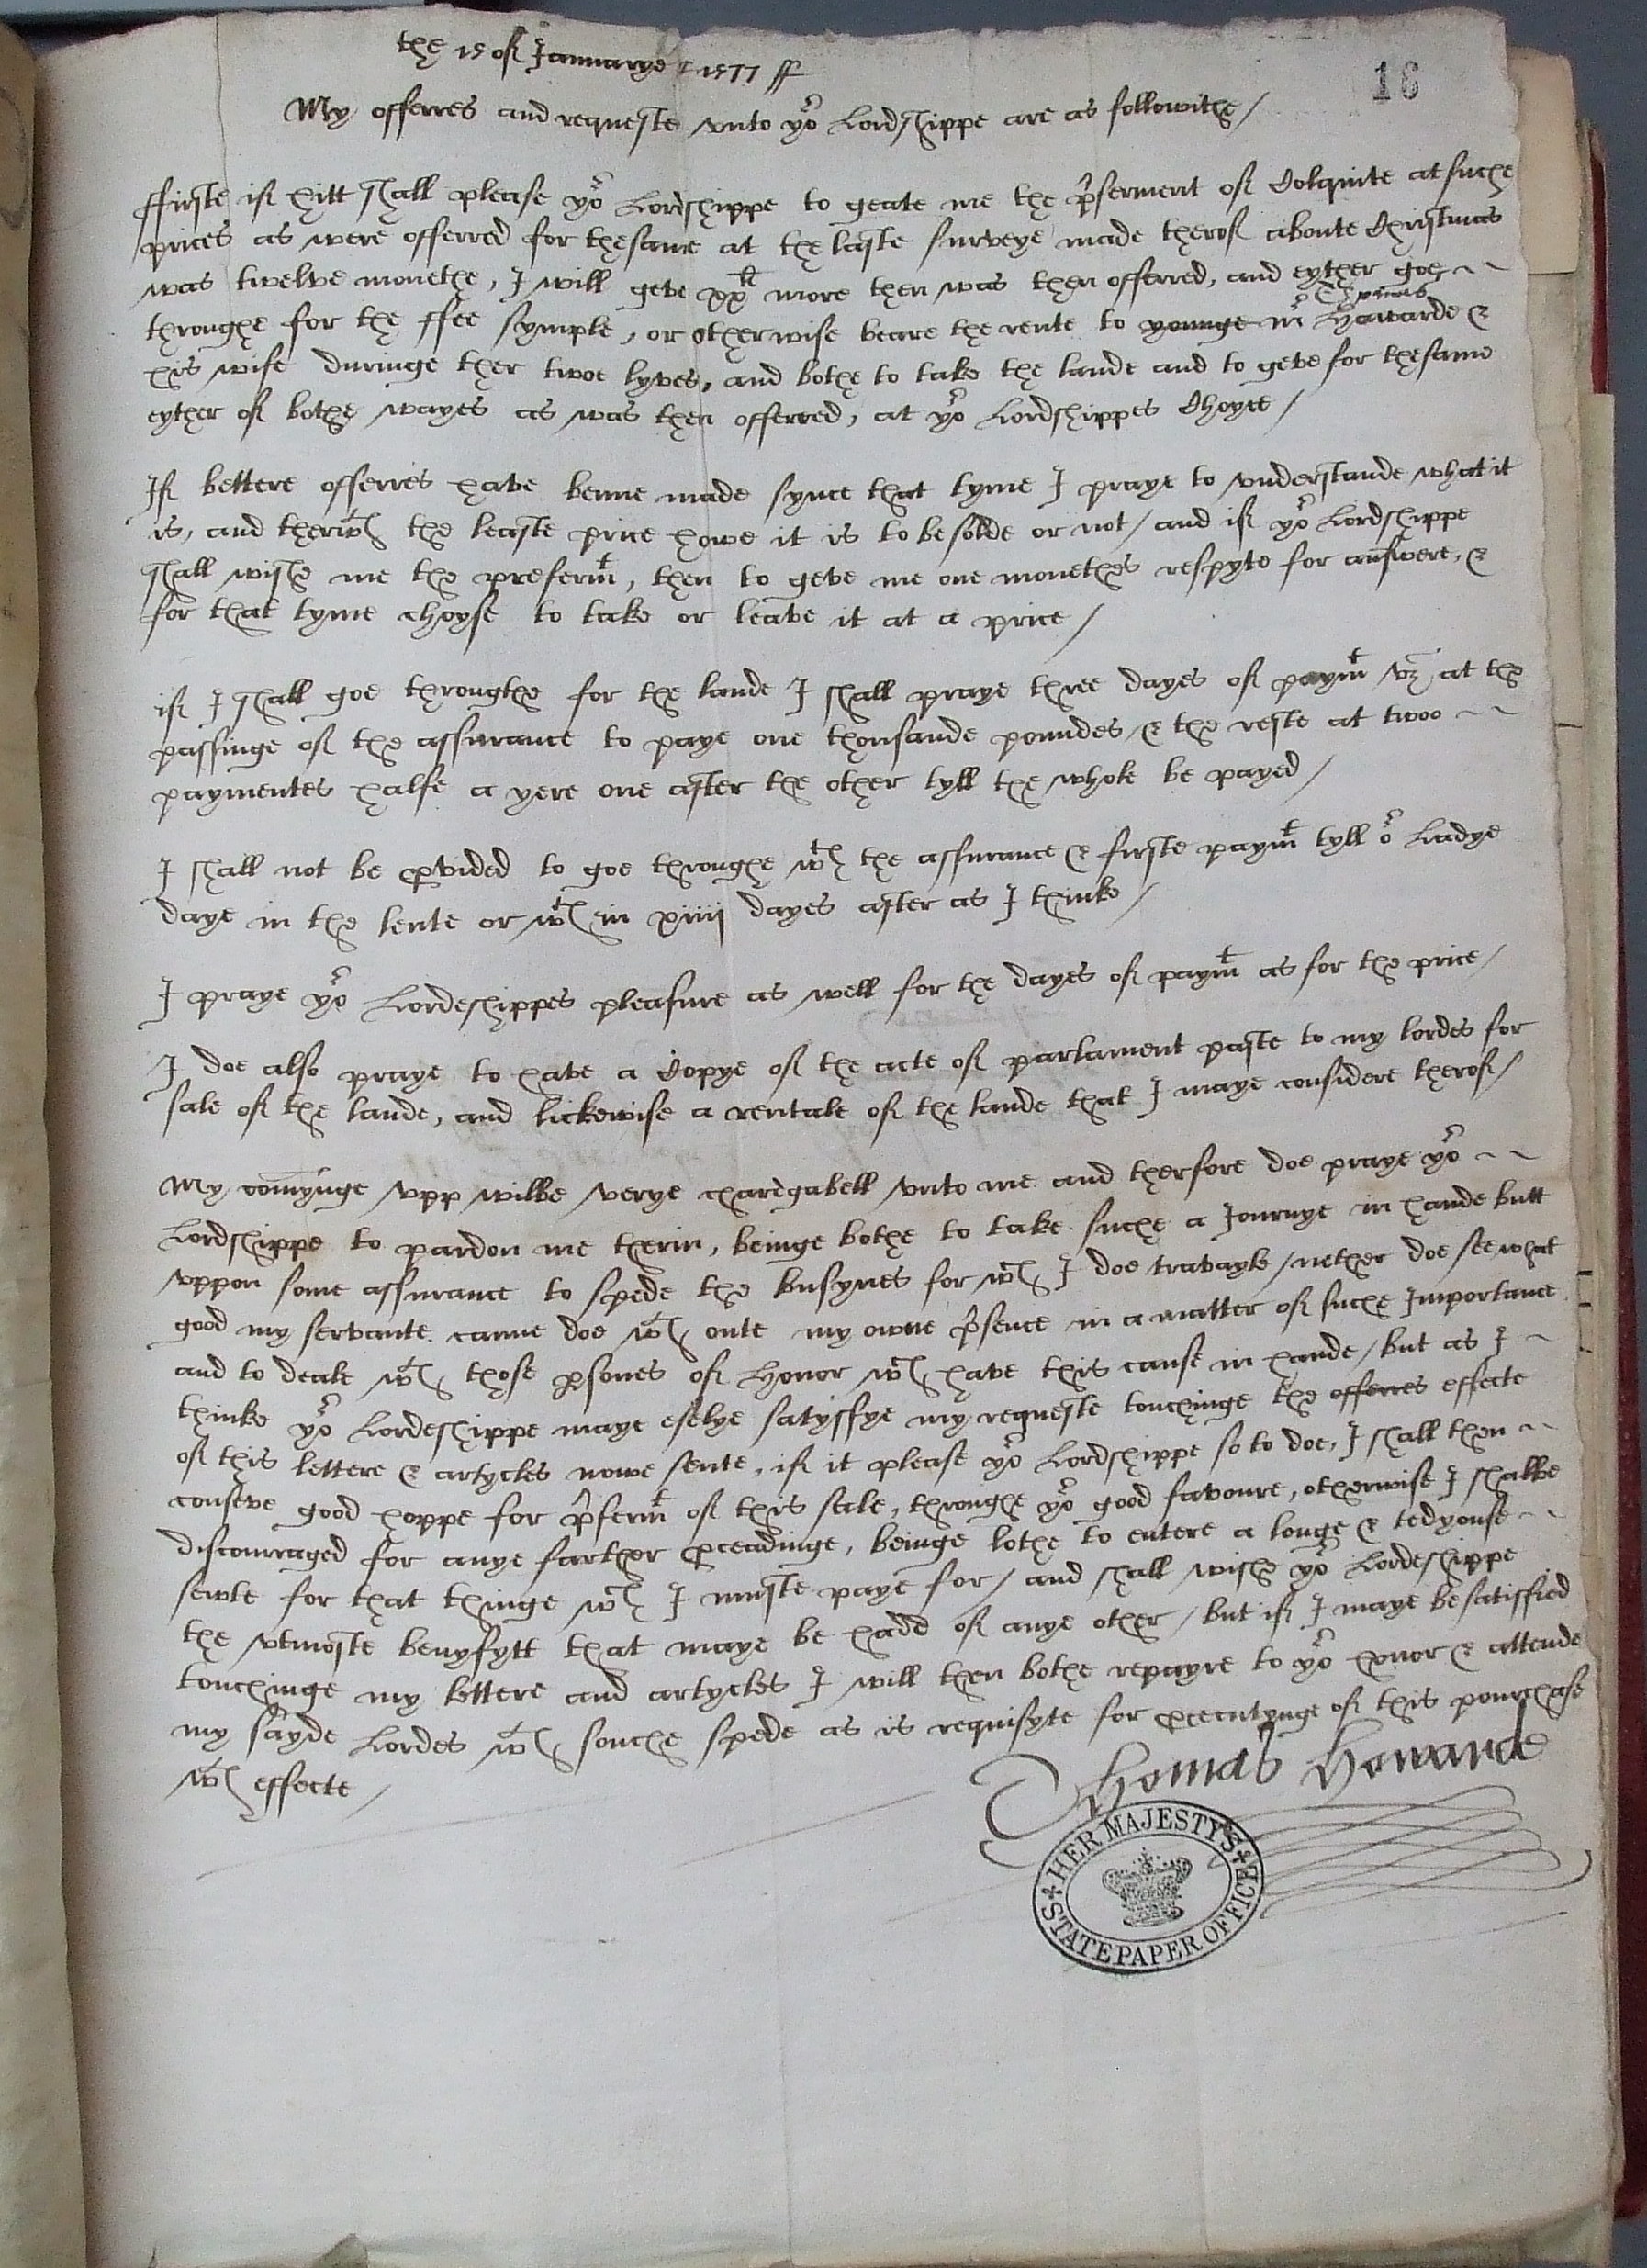 the 15 of Januarye 1577 ff
16
My offerres and requeste vnto yor Lordshippe are as followithe /
ffirste if hitt shall please yor Lordshippe to geate me the pferment of Colquite at suche
prices as were offerred for thesame at the laste surveye made therof aboute Christmas
was twelve monethe, I will geve xxli more then was then offerred, and eyther goe
throughe for the ffee symple, or otherwise beare the rente to younge mr Thomas Hawarde &
his wife duringe ther twoe lyves, and bothe to take the lande and to geve for thesame
eyther of bothe wayes as was then offerred, at yor Lordshippes Choyce /
If bettere offerres have benne made synce that tyme I praye to vnderstande what it
is, and therwth the leaste price howe it is to be solde or not / and if yor Lordshippe
shall wishe me the prefermt, then to geve me one monethes respyte for answere, &
for that tyme choyse to take or leave it at a price /
if I shall goe throughe for the lande I shall praye three dayes of paymt vz at the
passinge of the assurance to paye one thousande poundes, & the reste at twoo
paymentes halfe a yere one after the other tyll the whole be payed /
I shall not be pvided to goe throughe wth the assurance & firste paymt tyll or Ladye
daye in the lente or wth in xiiii dayes after as I thinke /
I praye yor Lordeshippes pleasure as well for the dayes of paymt as for the price /
I doe also praye to have a Copye of the acte of parlament paste to my lordes for
sale of the lande, and lickewise a rentale of the lande that I maye considere therof /
My comynge vpp wilbe verye charegabell vnto me and therfore doe praye yor
Lordshippe to pardon me therin, beinge bothe to take suche a Journye in hande butt
vppon some assurance to spede the busynes for wch I doe travayle / nether doe see what
good my servante canne doe wth oute my owne psence in a matter of suche Importance
and to deale wth those psones of Honor wch have this cause in hande / but as I
thinke yor Lordeshippe maye eselye satysfye my requeste touchinge the offerres effecte
of this lettere & artycles nowe sente, if it please yor Lordshippe so to doe, I shall then
conseve good hoppe for pfermt of this sale, throughe yor good favoure, otherwise I shalbe
discourraged for anye farther pceadinge, beinge lothe to entere a longe & tedyouse
sewte for that thinge wch I muste paye for / and shall wishe yor Lordeshippe
the vtmoste benyfytt that maye be hadd of anye other / but if I maye be satisffied
touchinge my lettere and artycles I will then bothe repayre to yor honor & attende
my sayde Lordes wth souche spede as is requisyte for pcecutynge of this pourchase
wth effecte /
Thomas Howarde
HER MAJESTY'S STATE PAPER OFFICE